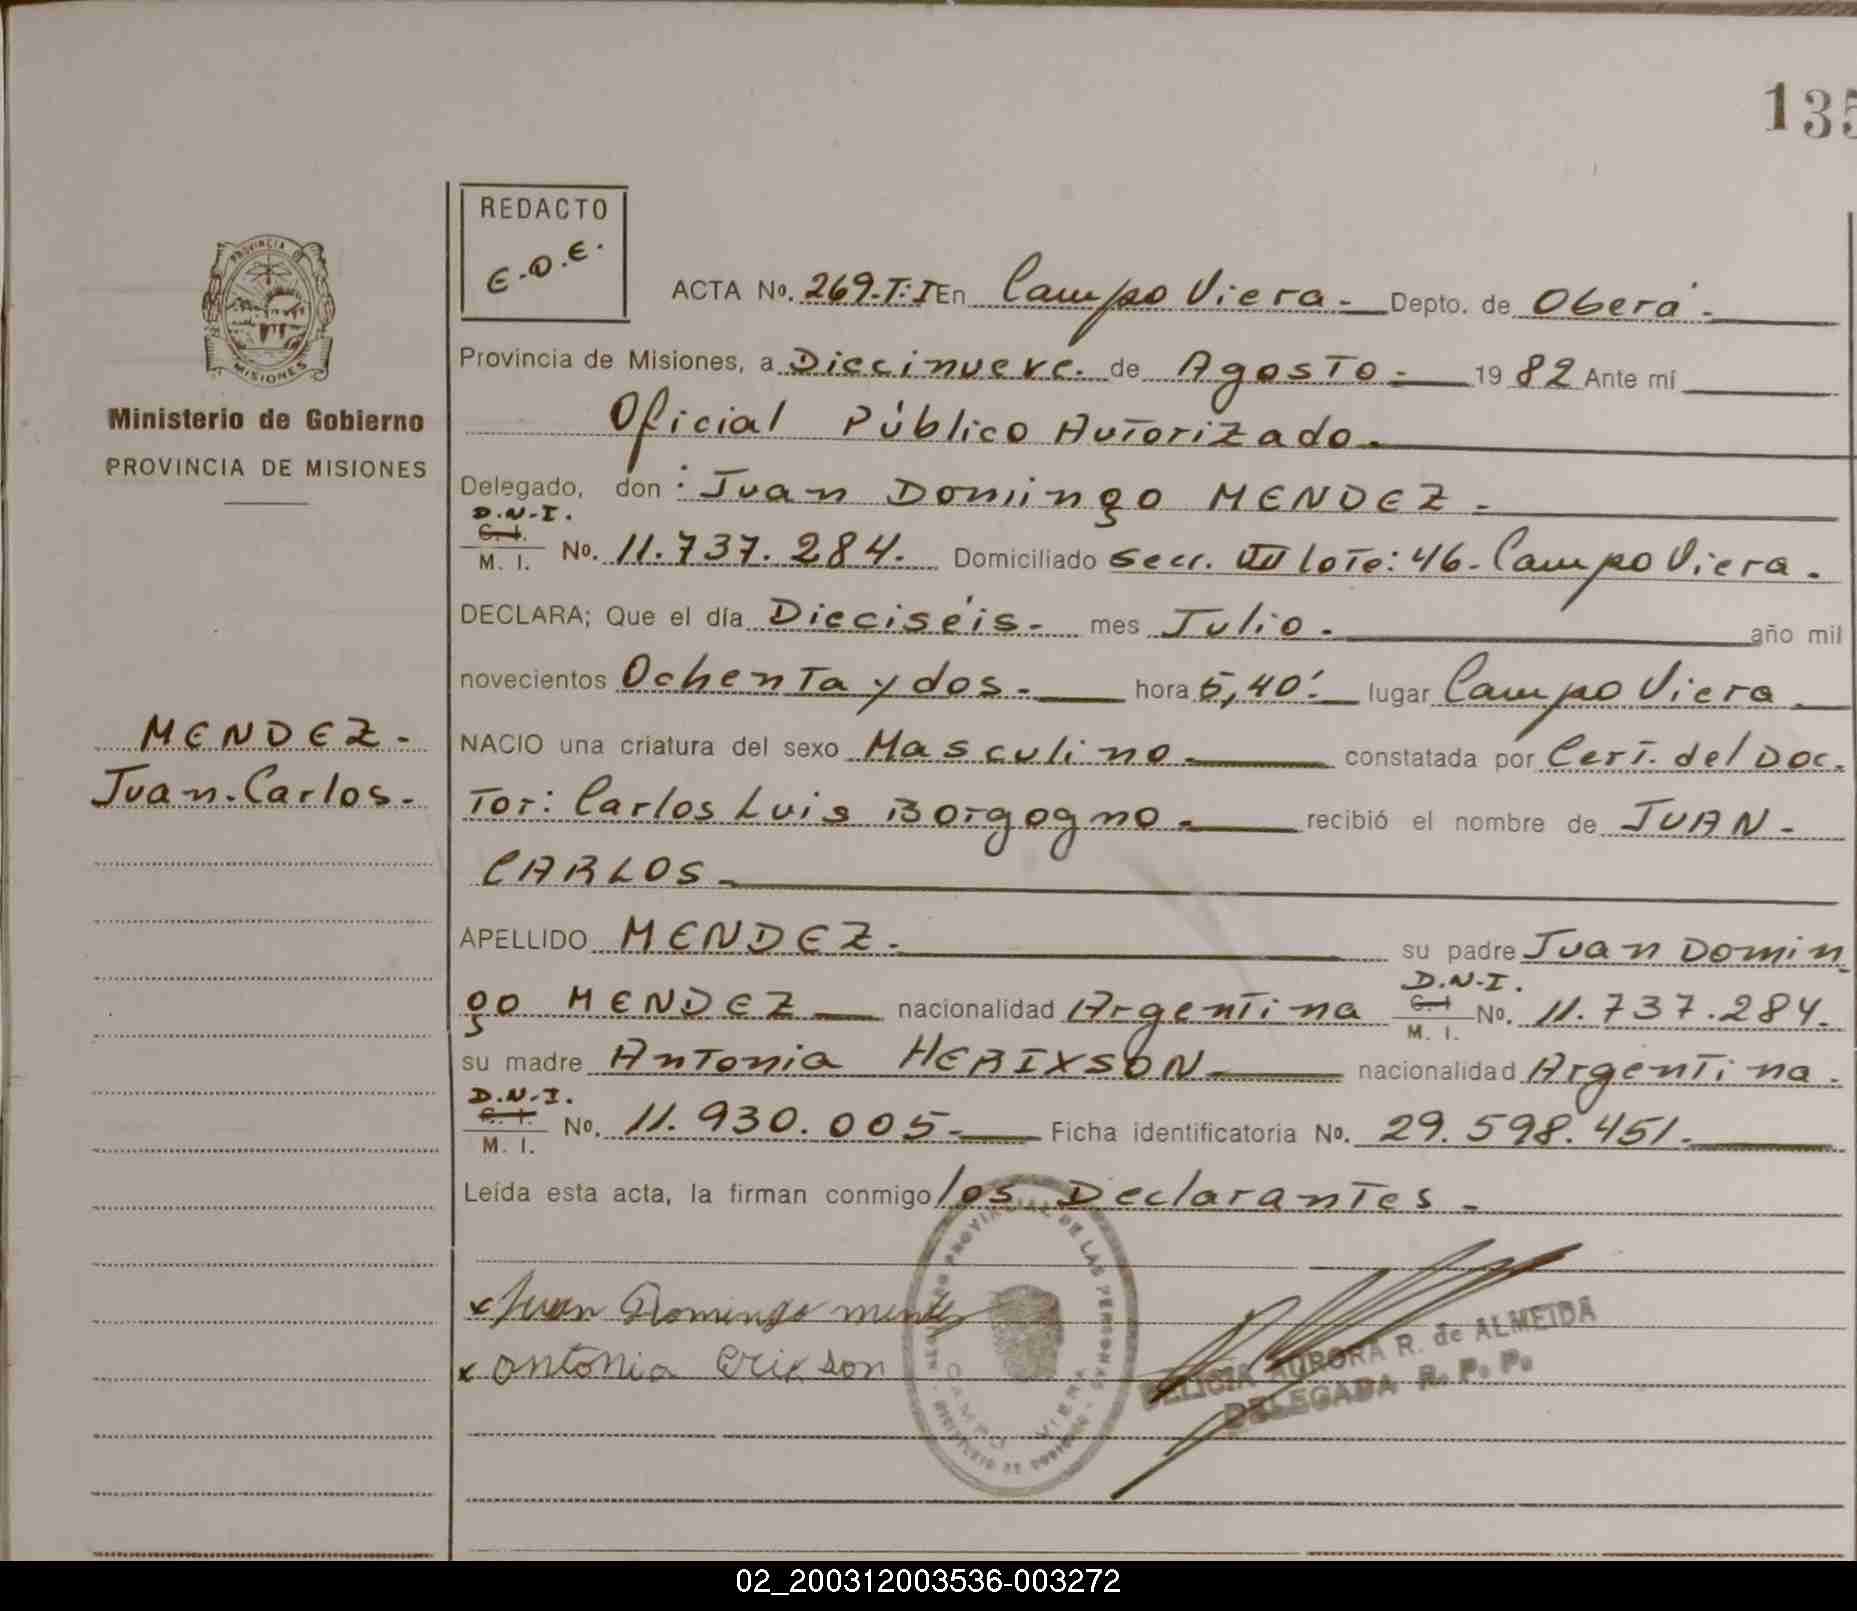 135
REDACTO
E.D.E.
PROVINCIA DE
MISIONES
Ministerio de Gobierno
PROVINCIA DE MISIONES
MENDEZ.-
Juan.Carlos.-
ACTA No. 269.T:I En Campo Viera.- Depto. de Oberá.-
Provincia de Misiones, a Diecinueve. de Agosto.- 19 82 Ante mí
Oficial Público Autorizado.-
Delegado, don: Juan Domingo MENDEZ.-
D.N.I.
C. I.
M. I. No. 11.737.284. Domiciliado Secc. III lote: 46.- Campo Viera.
DECLARA; Que el día Dieciséis.- mes Julio.- año mil
novecientos Ochenta y dos.- hora 5,40'.- lugar Campo Viera.
NACIO una criatura del sexo Masculino.- constatada por Cert. del Doc.
tor: Carlos Luis Borgogno.- recibió el nombre de JUAN-
CARLOS.-
APELLIDO MENDEZ.- su padre Juan Domin
D.N.I.
C. I.
go MENDEZ nacionalidad Argentina M. I. No. 11.737.284.
su madre Antonia HERIXSON nacionalidad Argentina.
D.N.I.
C. I.
M. I. No. 11.930.005.- Ficha identificatoria No. 29.598.451.-
Leída esta acta, la firman conmigo los Declarantes.-
x Juan Domingo mendez
x antonia Erikson
PROVINCIAL DE LAS PERSONAS
CAMPO VIERA
MINISTERIO DE GOBIERNO
FELICIA AURORA R. de ALMEIDA
DELEGADA R. P. P.
02_200312003536-003272